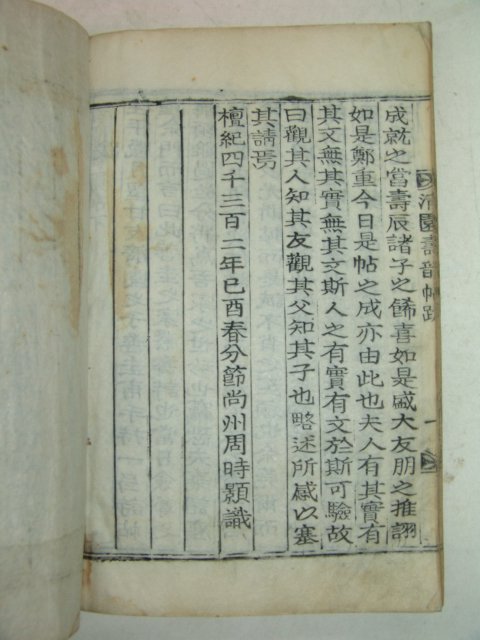 園壽音帖跋
成就之當壽辰諸子之餙喜如是盛大友朋之推詡
如是鄭重今日是帖之成亦由此也夫人有其實有
其文無其實無其文斯人之有實有文於斯可驗故
曰觀其人知其友觀其父知其子也略述所感以塞
其請焉
檀紀四千三百二年己酉春分節尚州周時顥識